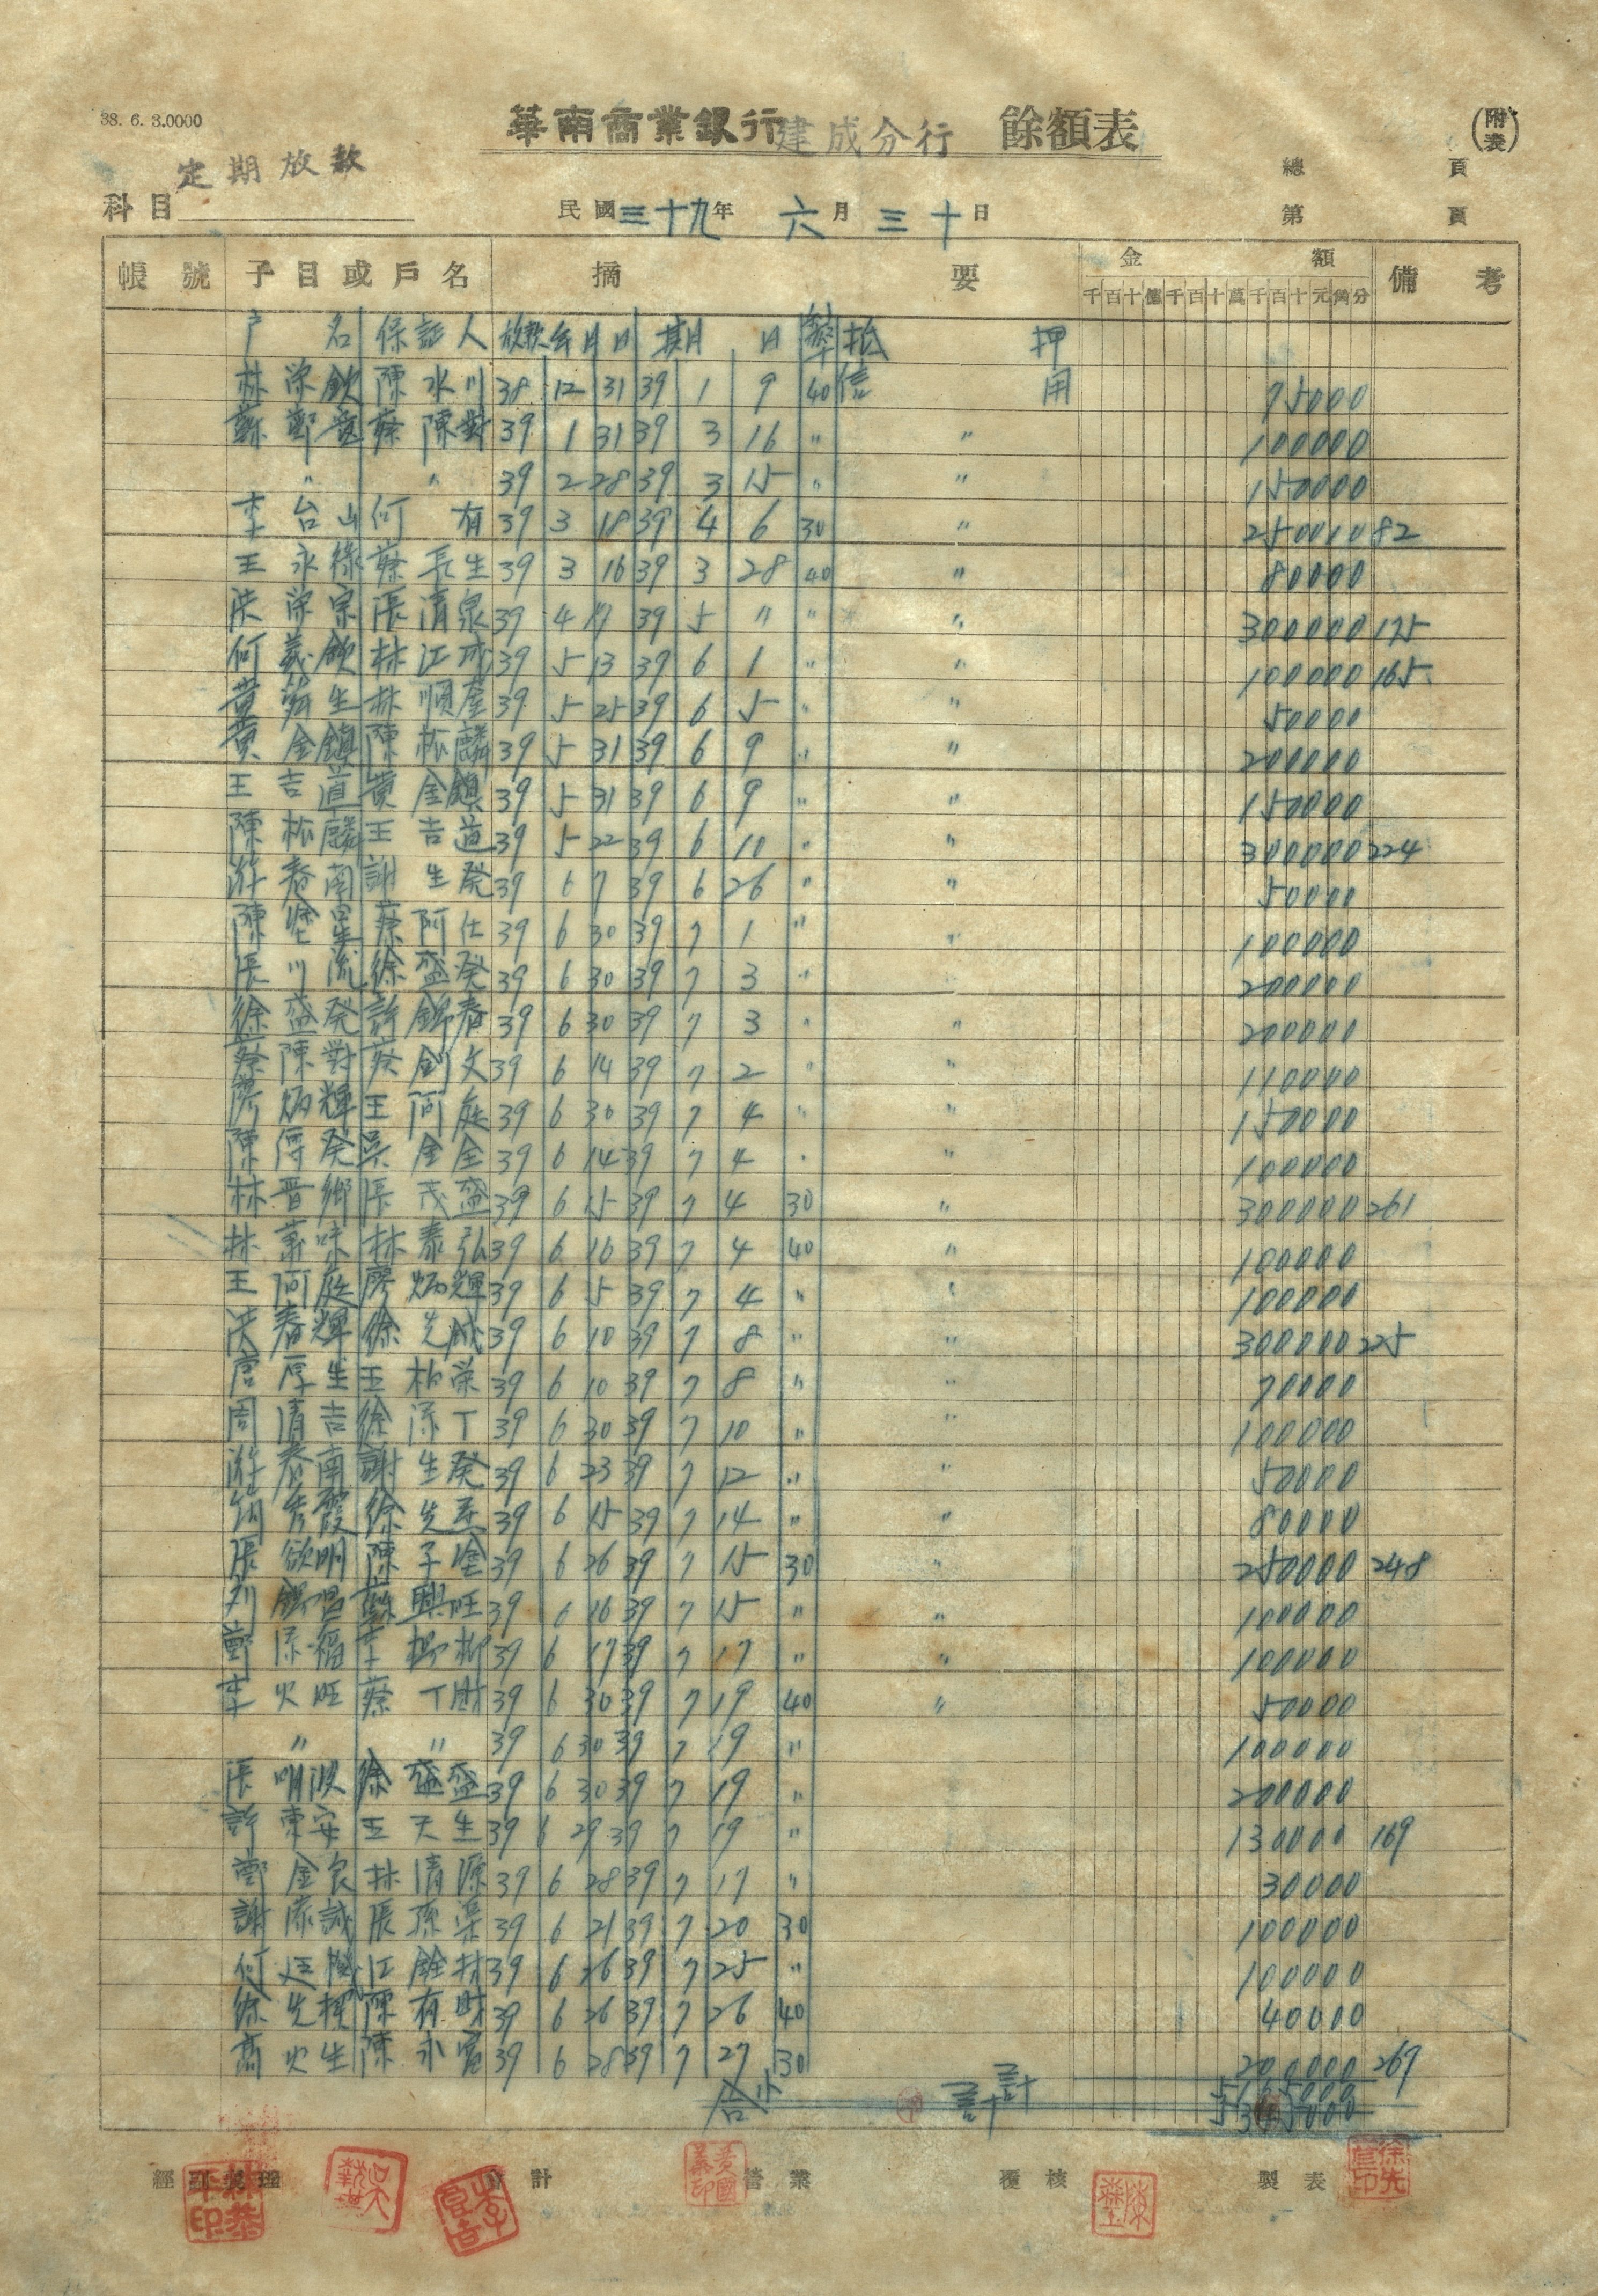 38. 6. 3.0000
華南商業銀行建成分行 餘額表 (附表)
定期放款
總 頁
科目 民國三十九年 六月三十日 第 頁
帳號 子目或戶名 摘要 金額 備考
千百十億千百十萬千百十元角分
戶名 保証人 放款年月日 期月日 利率 抵押
林深欽 陳水川 38 12 31 39 1 9 40 信用 75000
蘇鄭 蔡陳對 39 1 31 39 3 16 〃 〃 100000
〃 〃 39 2 28 39 3 15 〃 〃 150000
李台山 何有 39 3 18 39 4 6 30 〃 250010 82
王永祿 蔡長生 39 3 16 39 3 28 40 〃 80000
洪深宗 張清泉 39 4 17 39 5 〃 〃 〃 300000 175
何義欽 林江成 39 5 13 39 6 1 〃 〃 100000 165
黃生 林順 39 5 25 39 6 5 〃 〃 50000
黃金鎮 陳振麟 39 5 31 39 6 9 〃 〃 200000
王吉道 黃金鎮 39 5 31 39 6 9 〃 〃 150000
陳振麟 王吉道 39 5 22 39 6 10 〃 〃 300000 224
游春南 謝生發 39 6 7 39 6 26 〃 〃 50000
陳塗星 蔡阿仕 39 6 30 39 7 1 〃 〃 100000
張川流 徐盛發 39 6 30 39 7 3 〃 〃 200000
徐盛發 許錦春 39 6 30 39 7 3 〃 〃 200000
蔡陳對 蔡劍文 39 6 14 39 7 2 〃 〃 110000
廖炳輝 王阿庭 39 6 30 39 7 4 〃 〃 150000
陳得發 吳金全 39 6 14 39 7 4 〃 〃 100000
林晋鄉 張茂盛 39 6 15 39 7 4 30 〃 300000 261
林味 林泰弘 39 6 16 39 7 4 40 〃 100000
王阿庭 廖炳輝 39 6 5 39 7 4 〃 〃 100000
洪春輝 徐先成 39 6 10 39 7 8 〃 〃 300000 225
厚生 王柏榮 39 6 10 39 7 8 〃 〃 70000
周清吉 徐添丁 39 6 30 39 7 10 〃 〃 100000
游春南 謝生發 39 6 23 39 7 12 〃 〃 50000
秀霞 徐先 39 6 15 39 7 14 〃 〃 80000
張欲明 陳子塗 39 6 26 39 7 15 30 〃 250000 248
刘錦 蘇興旺 39 6 16 39 7 15 〃 〃 100000
鄭添福 李柳 39 6 17 39 7 17 〃 〃 100000
李火旺 蔡丁財 39 6 30 39 7 19 40 〃 50000
〃 〃 39 6 30 39 7 19 〃 100000
張明波 徐盛盛 39 6 30 39 7 19 〃 200000
許東安 王天生 39 6 29 39 7 19 〃 130000 169
鄭金良 林清源 39 6 28 39 7 17 〃 30000
謝添誠 張添渠 39 6 21 39 7 20 30 100000
何廷 江餘財 39 6 26 39 7 25 〃 100000
徐先 陳有財 39 6 26 39 7 26 40 40000
高火生 陳永 39 6 28 39 7 27 30 200000 269
小計 5165000
合計
經理 會計 營業 覆核 製表